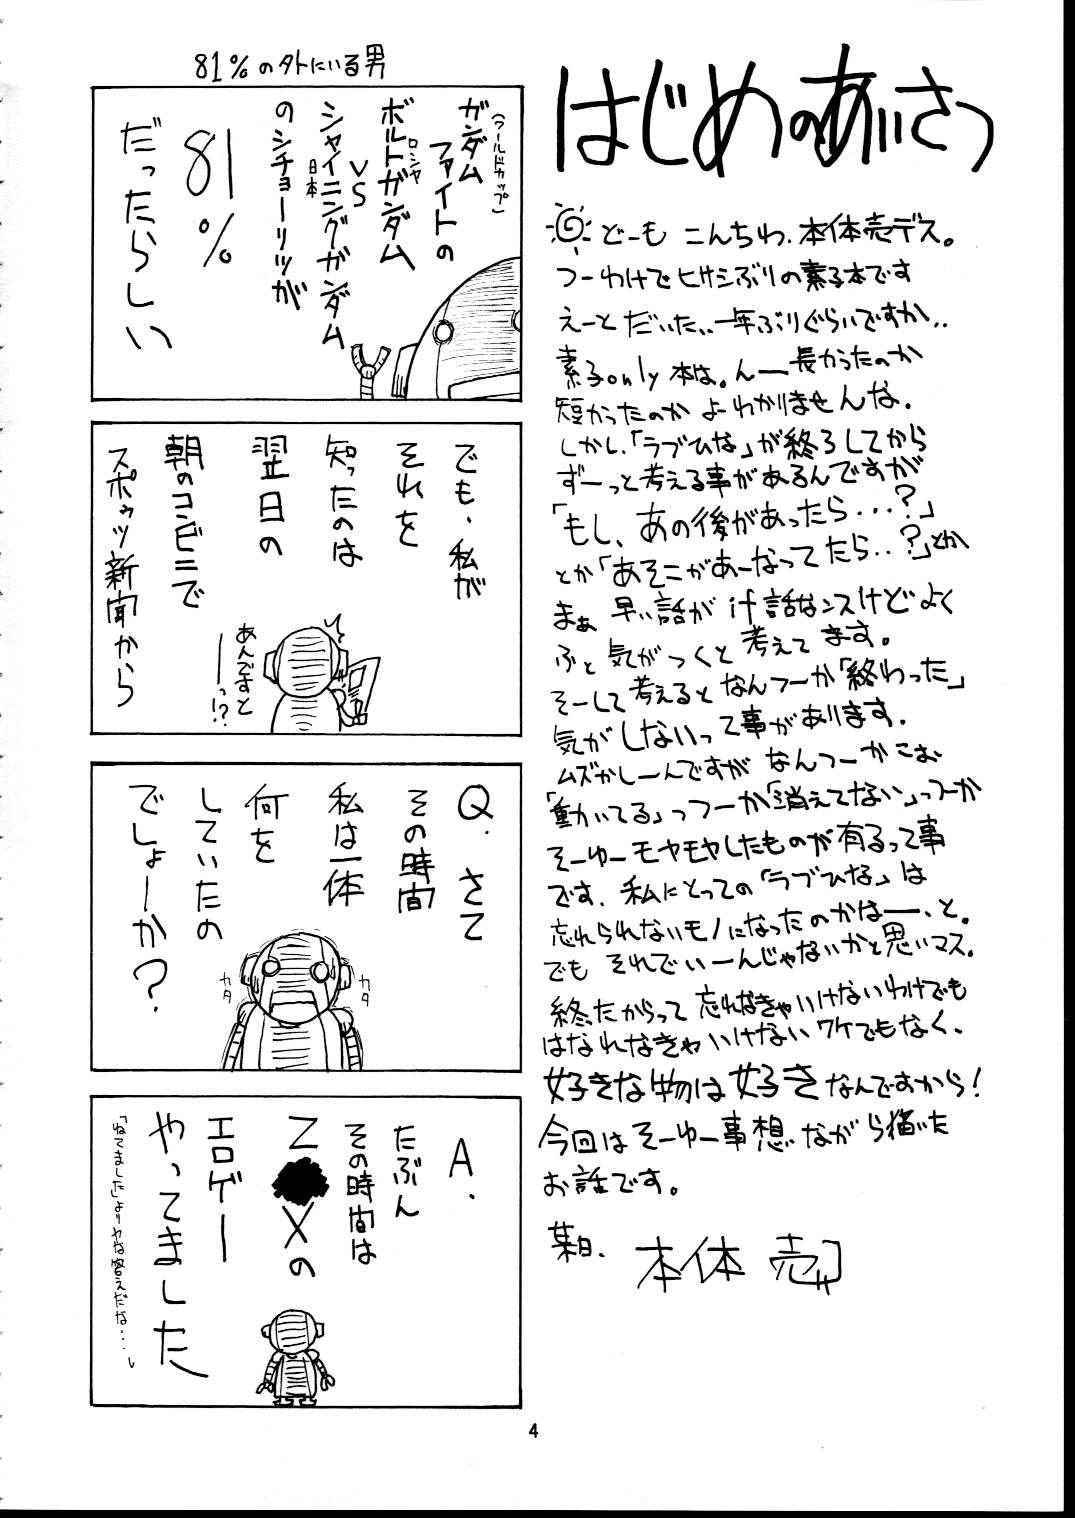 はじめのあいさつ
どーも こんちわ、本体売デス。
つーわけでヒサシぶりの素子本です
えーと だいた、、一年ぶりぐらいですか、、
素子only本は。んー長かったのか
短かったのか よーわかりませんな。
しかし、「ラブひな」が終ろしてから
ずーっと考える事があるんですが
「もし、あの後があったら...?」
とか「あそこがあーなってたら..?」とか
まぁ 早い話が if話なンスけどよく
ふと 気がつくと 考えてます。
そーして考えると なんつーか「終わった」
気がしないって事があります。
ムズかしーんですが なんつーかこぉ
「動いてる」っつーか「消えてない」っつーか
そーゆーモヤモヤしたものが有るって事
です。私にとっての「ラブひな」は
忘れられないモノになったのかなーー、と。
でも それでいーんじゃないかと思いマス。
終ったからって 忘れなきゃいけないわけでも
はなれなきゃいけないワケでもなく、
好きな物は好きなんですから!
今回はそーゆー事想いながら描いた
お話です。
某日、 本体 売
81%の外にいる男
(ワールドカップ)
ガンダム
ファイトの
ボルトガンダム
ロシヤ
VS
シャイニングガンダム
日本
のシチョーリツが
81%
だったらしい
でも、私が
それを
知ったのは
翌日の
朝のコンビニで
スポゥツ新聞から
あんですと
ーーっ!?
Q.さて
その時間
私は一体
何を
していたの
でしょーか?
カタ
カタ
A.
たぶん
その時間は
Z●Xの
エロゲー
やってました
「ねてました」よりヤな答えだな...し
4